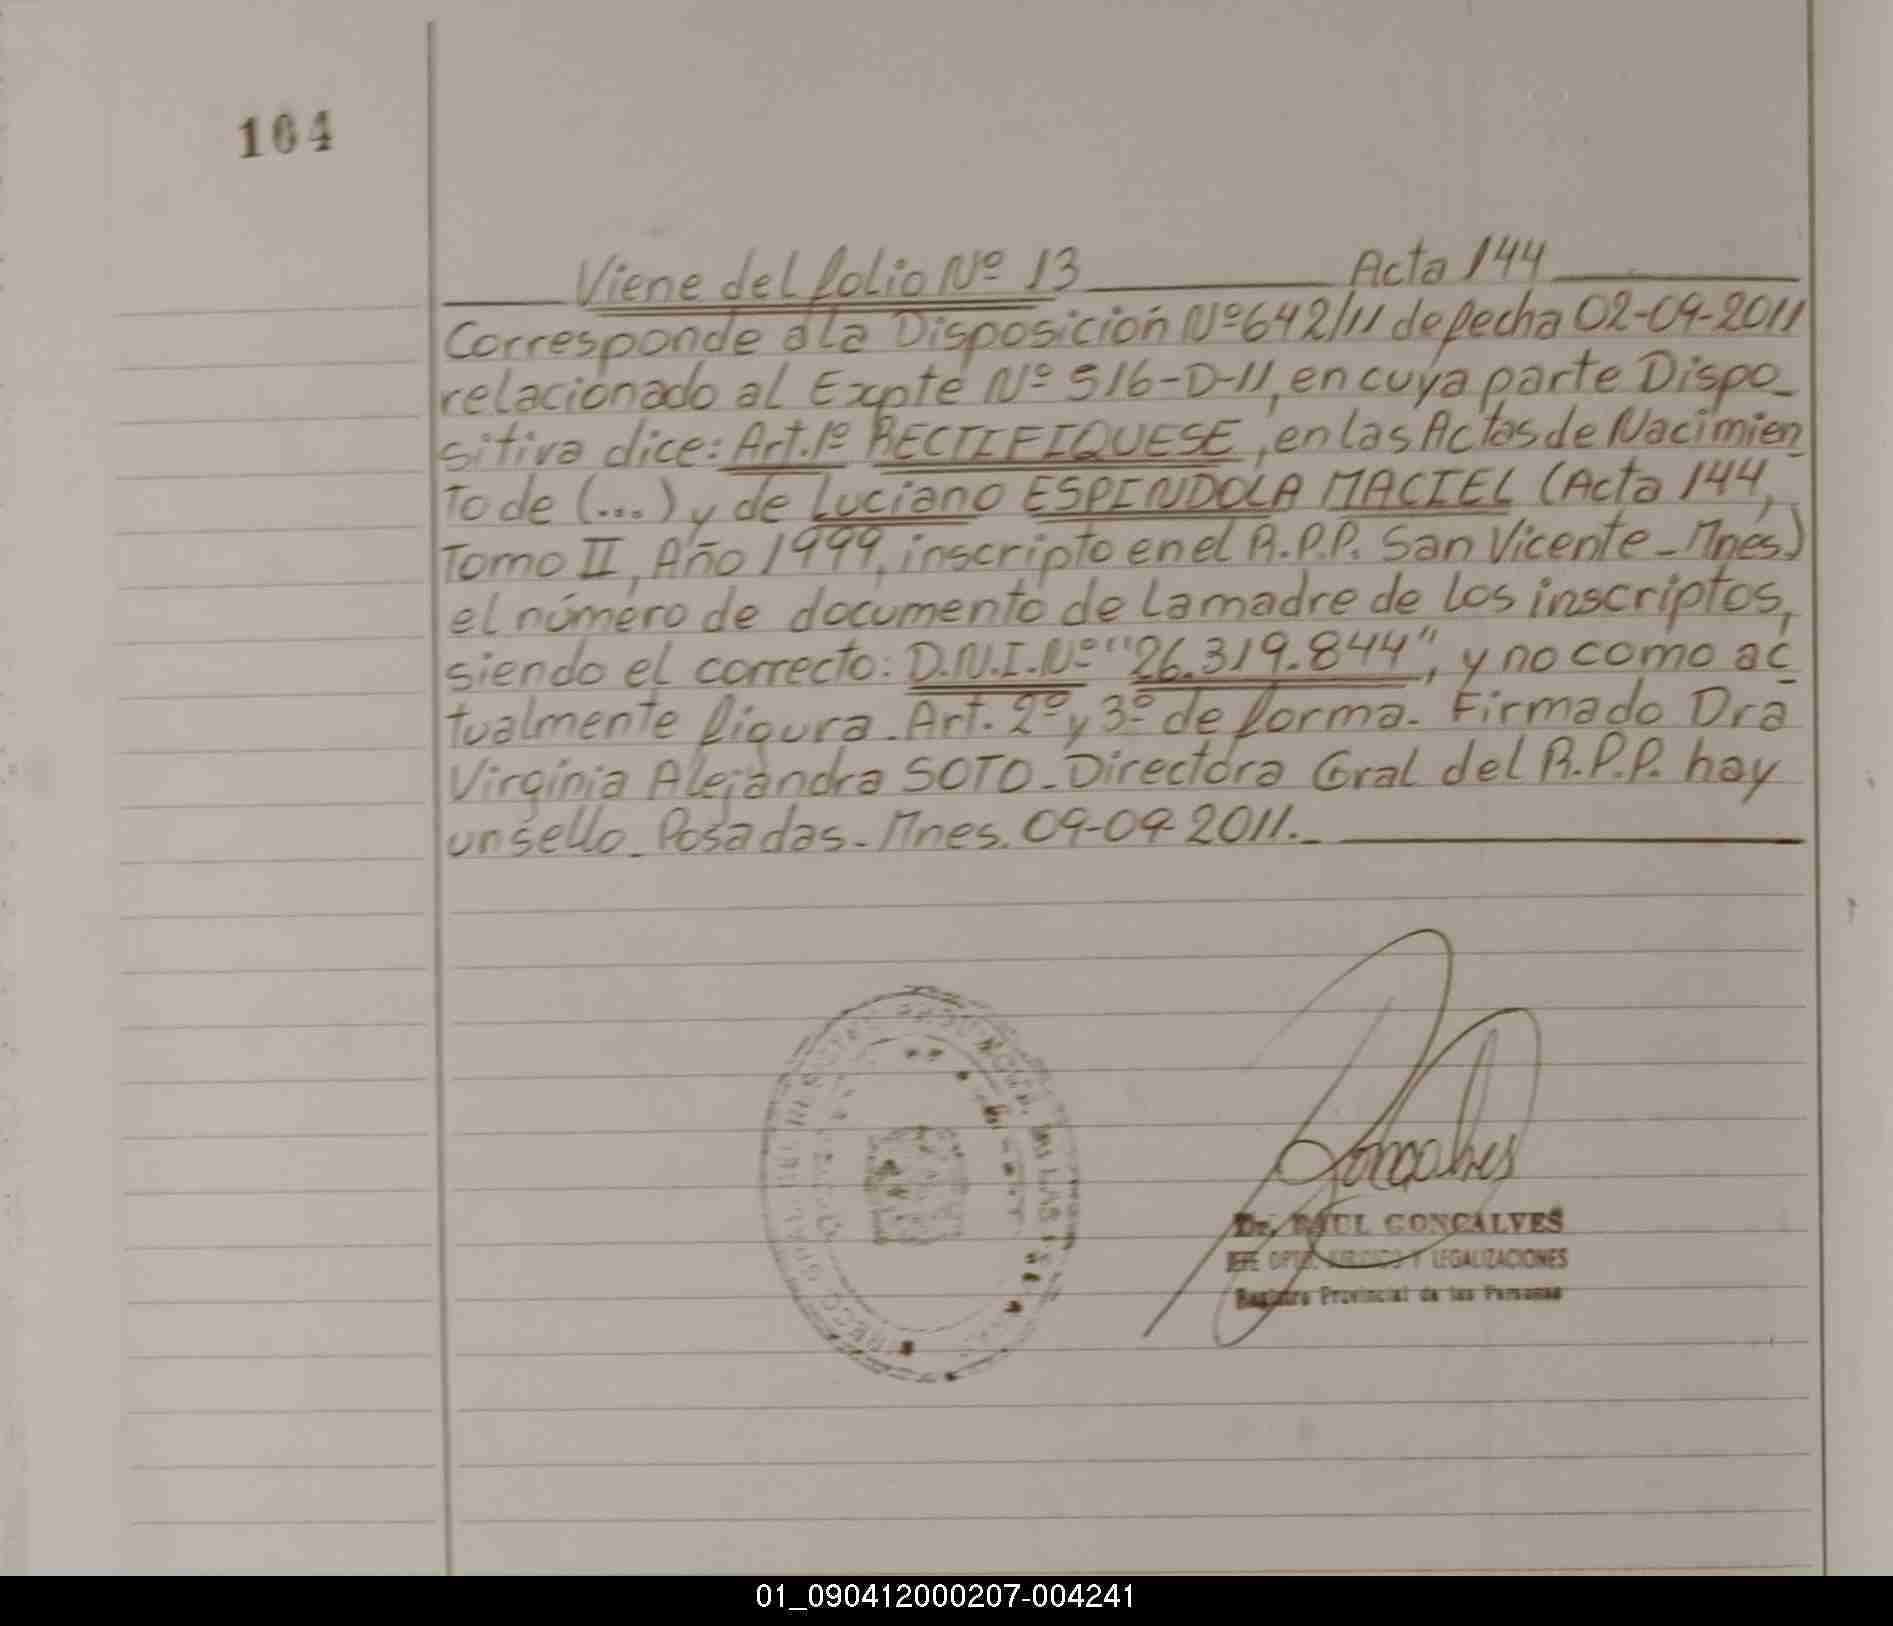 104
Viene del folio Nº 13 Acta 144
Corresponde a la Disposición Nº 642/11 de fecha 02-09-2011
relacionado al Expte Nº 516-D-11, en cuya parte Dispo_
sitiva dice: Art. 1º RECTIFIQUESE, en las Actas de Nacimien
To de (...) y de Luciano ESPINDOLA MACIEL (Acta 144,
Tomo II, Año 1999, inscripto en el R.P.P. San Vicente - Mnes)
el número de documento de la madre de los inscriptos,
siendo el correcto: D.N.I. Nº "26.319.844", y no como ac
tualmente figura. Art. 2º y 3º de forma. Firmado Dra
Virginia Alejandra SOTO - Directora Gral del R.P.P. hay
un sello - Posadas - Mnes. 09-09-2011.
Goncalves
Dr. RAUL GONCALVES
JEFE DPTO. Y LEGALIZACIONES
Registro Provincial de las Personas
01_090412000207-004241